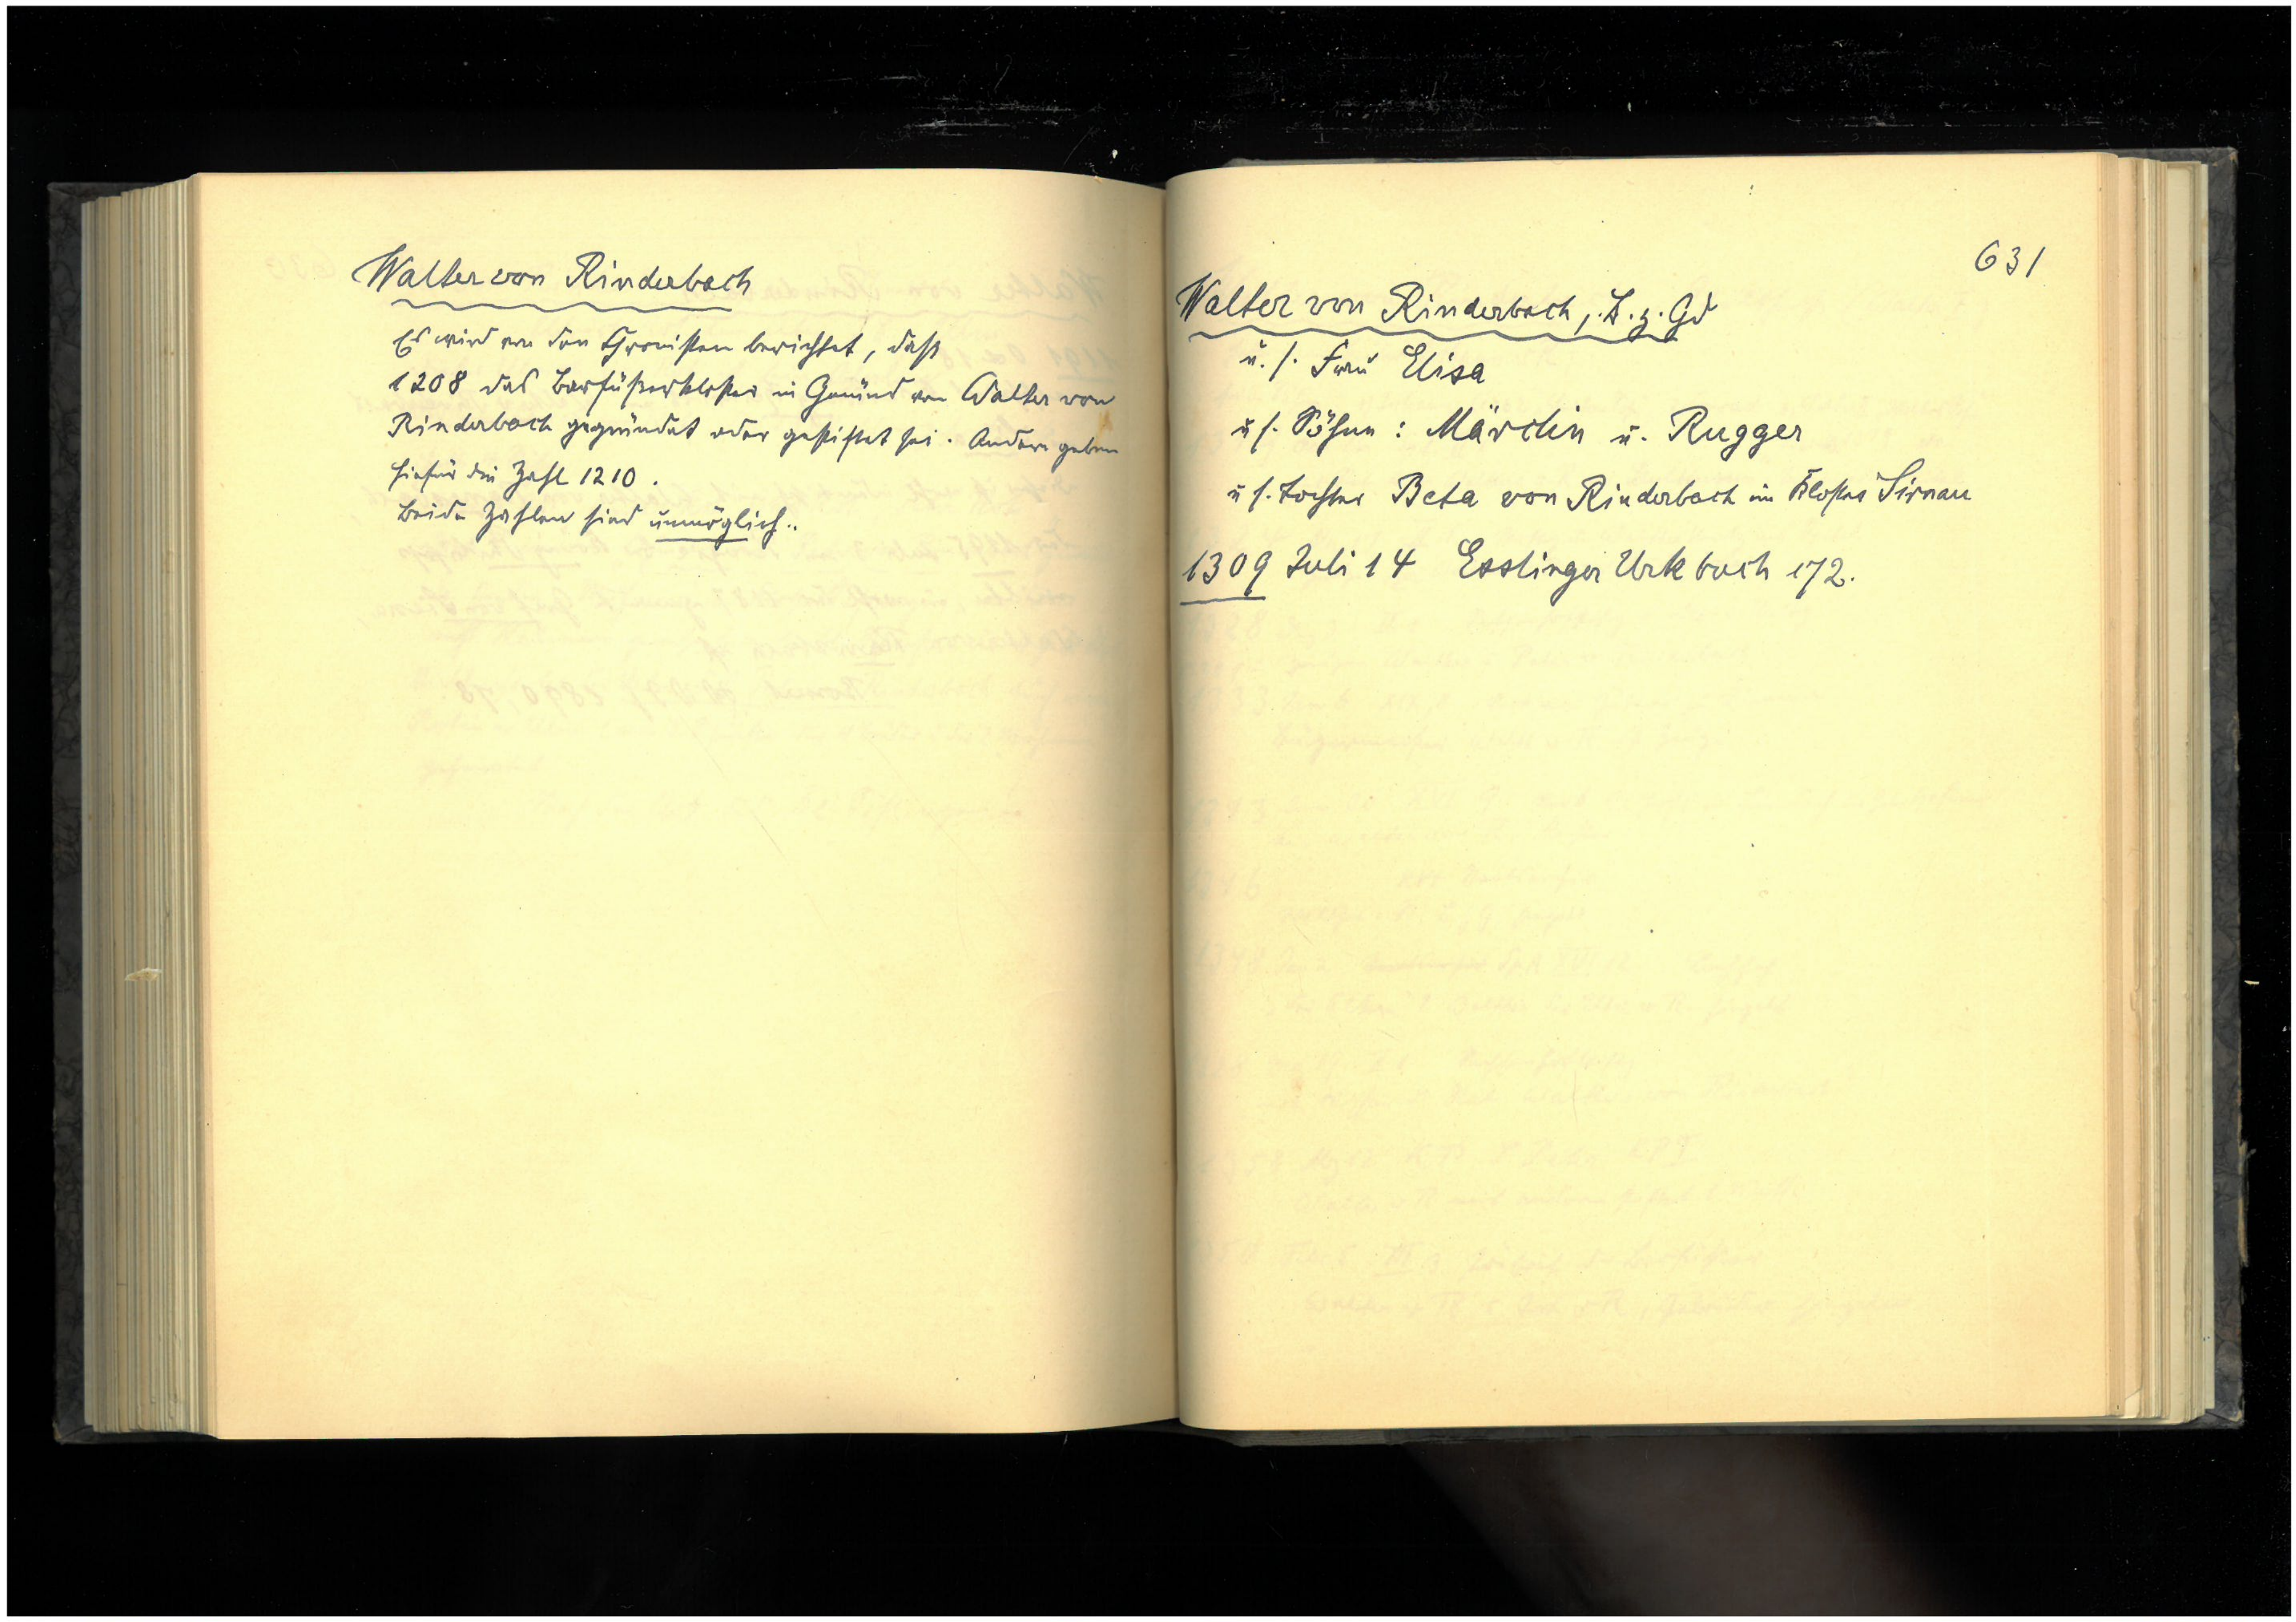 Walter von Rinderbach
Es wird von den Chronisten berichtet, daß
1208 das Barfüßerkloster in Gmünd von Walter von
Rinderbach gegründet oder gestiftet sei. Andere geben
hiefür die Zahl 1210.
Beide Zahlen sind unmöglich..
631
Walter von Rinderbach, B. z. Gd
u. s. Frau Elisa
u s. Söhne: Märclin u. Rugger
u s. Tochter Beta von Rinderbach im Kloster Sirnau
1309 Juli 14 Esslinger Urkbuch 172.